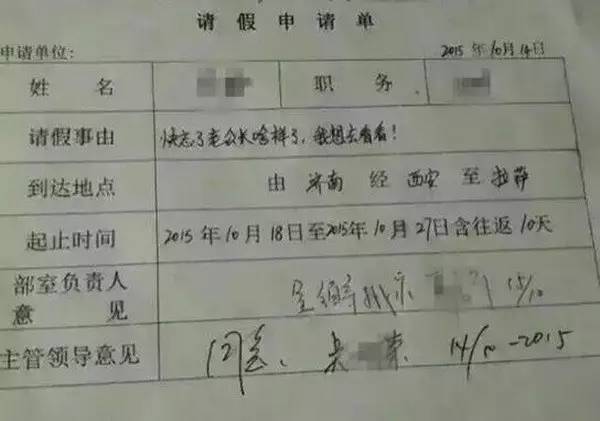 请假申请单
申请单位: 2015年10月14日
姓名 职务
请假事由 快忘了老公长啥样了,我想去看看!
到达地点 由 济南 经 西安 至 拉萨
起止时间 2015年10月18日至2015年10月27日含往返10天
部室负责人 15/10
意见
主管领导意见 同意、 14/10-2015